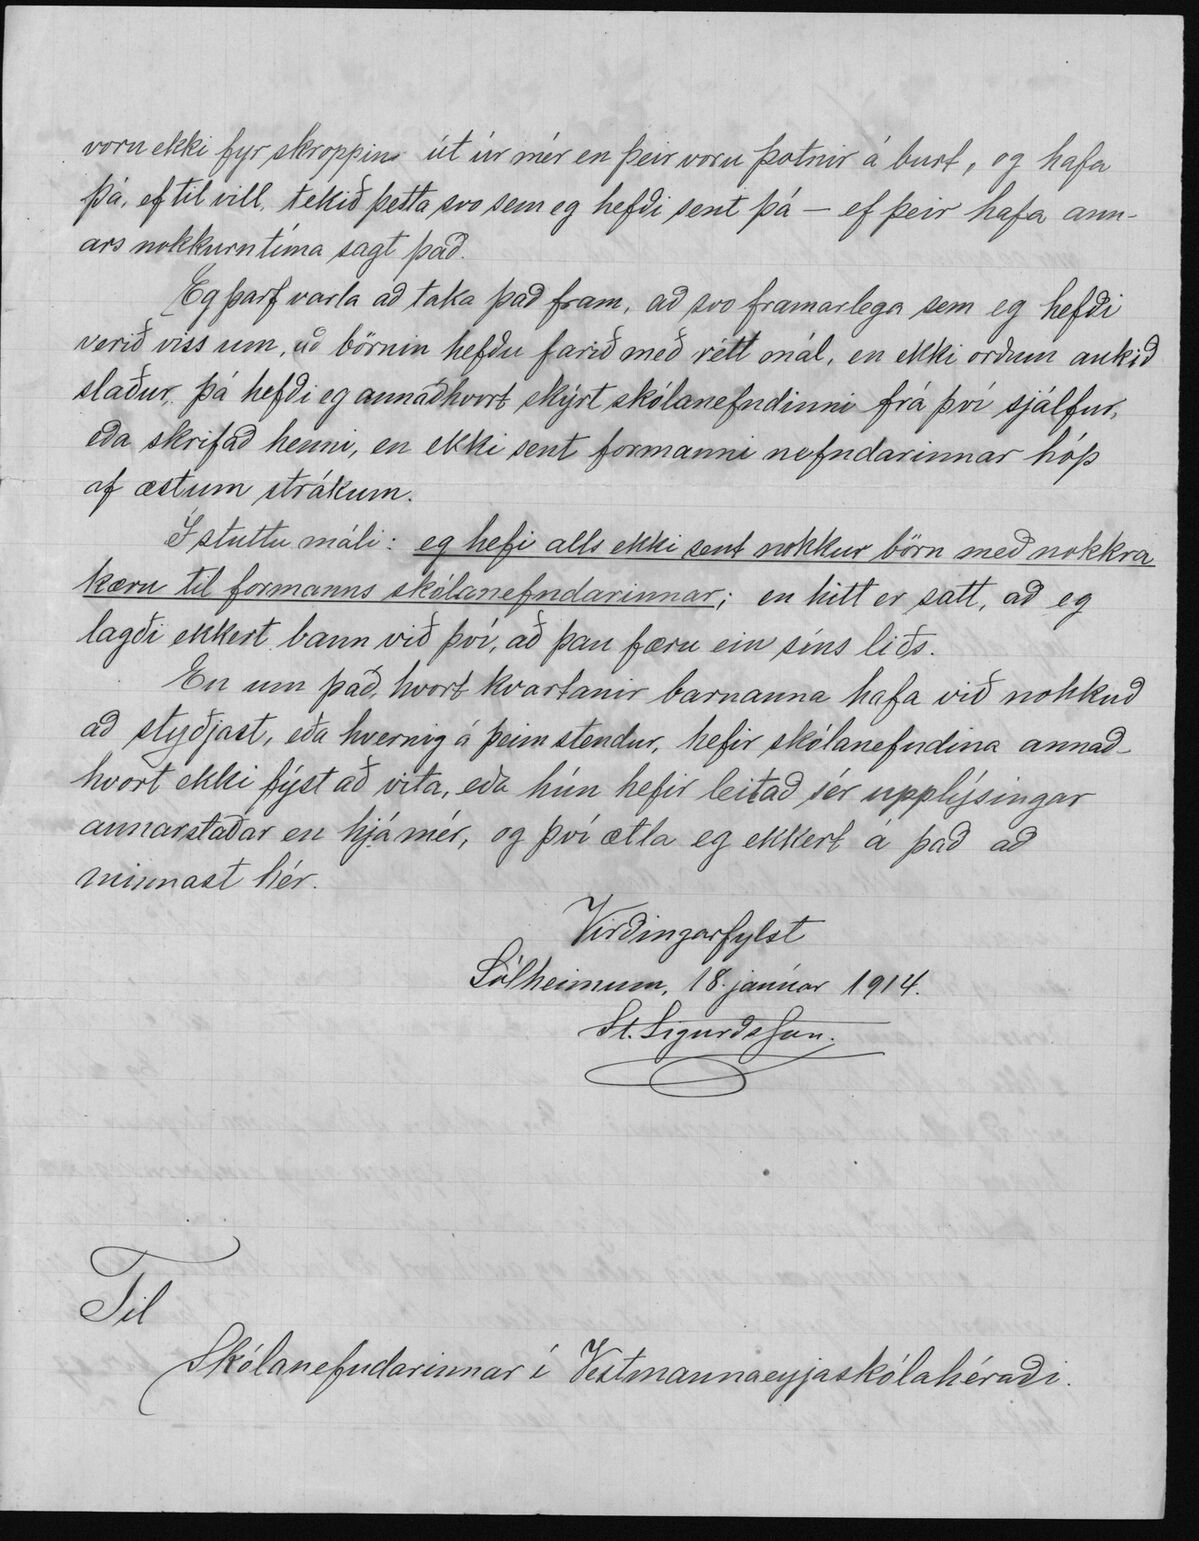 voru ekki fyr skroppin út úr mér en þeir voru þotnir á burt, og hafa
þá, ef til vill, tekið þetta svo sem eg hefði sent þá – ef þeir hafa ann-
ars nokkurn tíma sagt það.
Eg þarf varla að taka það fram, að svo framarlega sem eg hefði
verið viss um, að börnin hefðu farið með rétt mál, en ekki orðum aukið
slaður, þá hefði eg annaðhvort skýrt skólanefndinni frá því sjálfur,
eða skrifað henni, en ekki sent formanni nefndarinnar hóp
af æstum strákum.
Í stuttu máli: eg hefi alls ekki sent nokkur börn með nokkra
kæru til formanns skólanefndarinnar; en hitt er satt, að eg
lagði ekkert bann við því, að þau færu ein síns liðs.
En um það, hvort kvartanir barnanna hafa við nokkuð
að styðjast, eða hvernig á þeim stendur, hefir skólanefndina annað-
hvort ekki fýst að vita, eða hún hefir leitað sér upplýsingar
annarstaðar en hjá mér, og því ætla eg ekkert á það að
minnast hér.
Virðingarfylst
Sólheimum, 18. janúar 1914.
St. Sigurðsson.
Til
Skólanefndarinnar í Vestmannaeyjaskólahéraði.